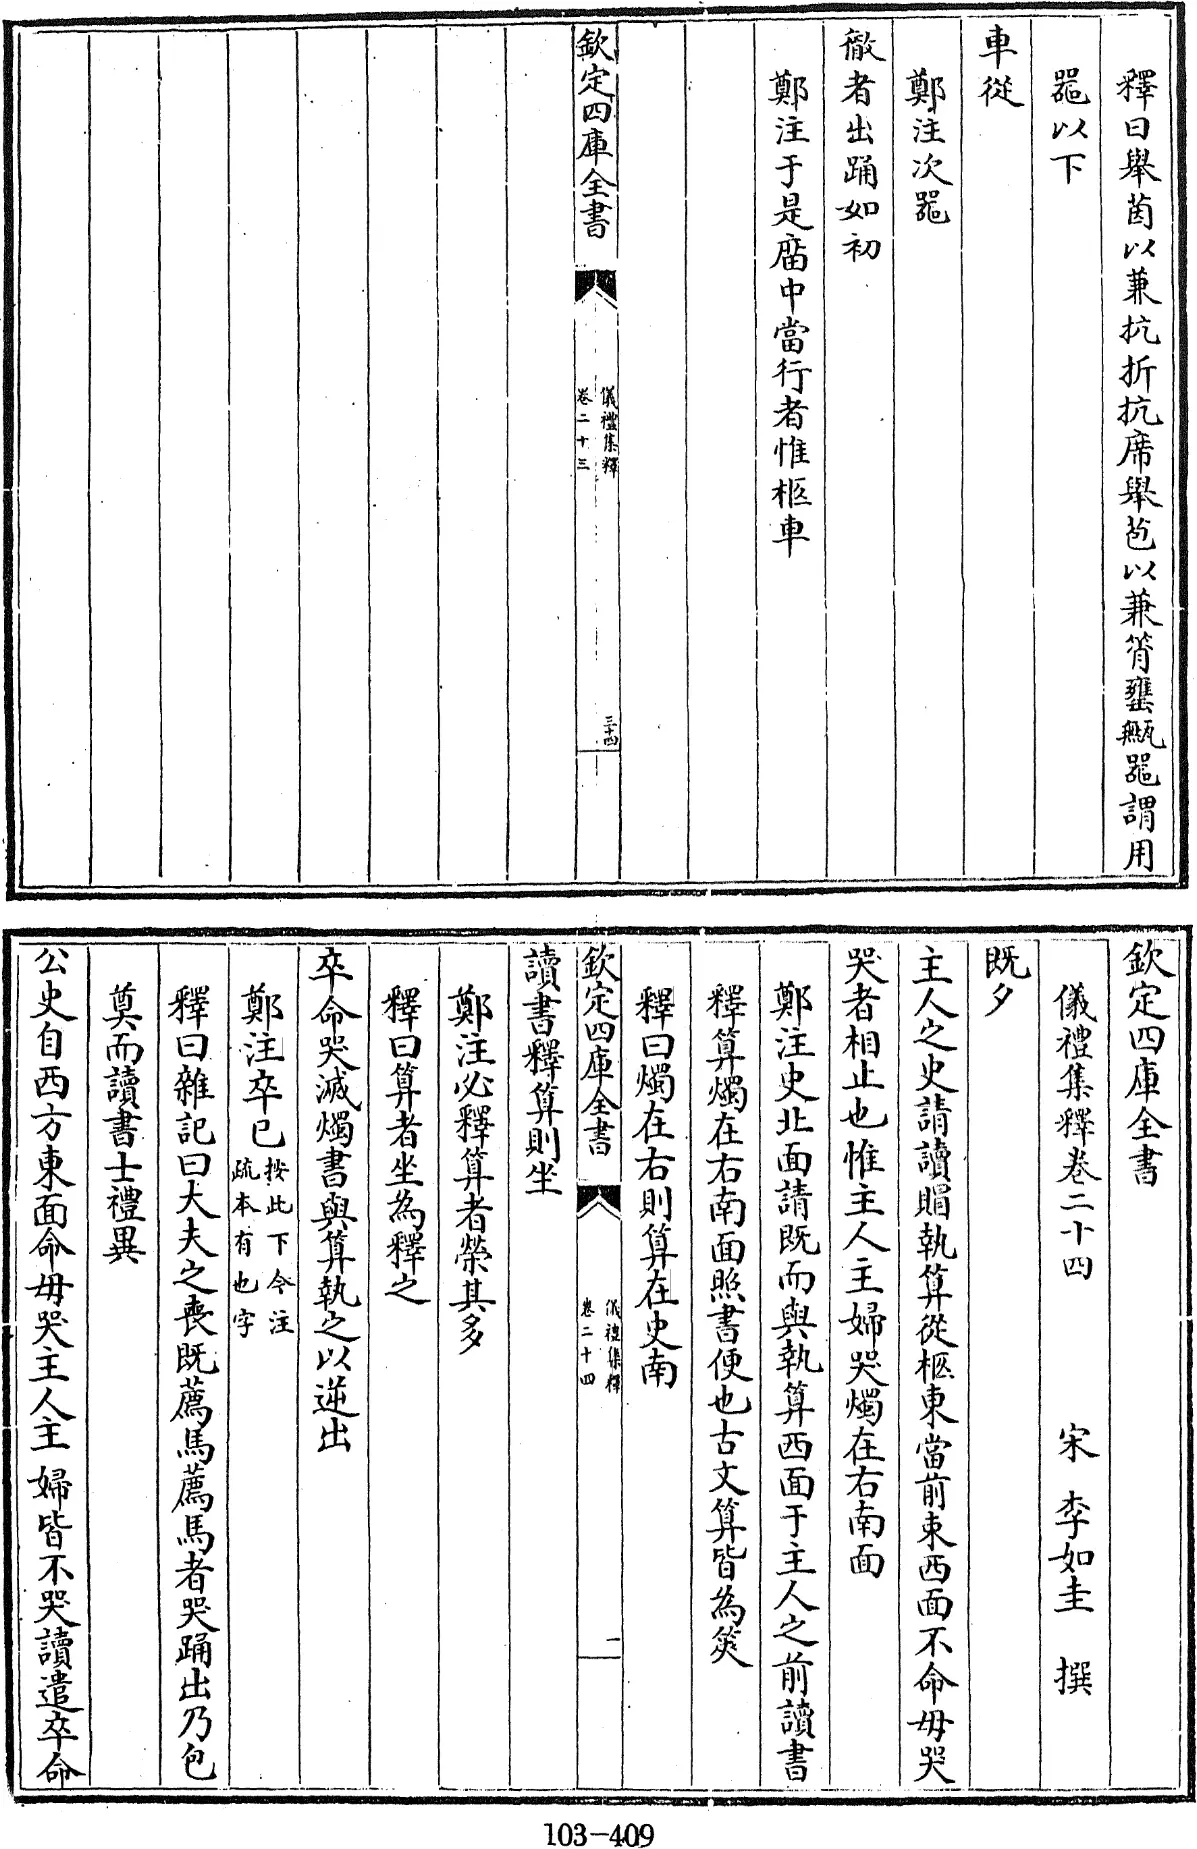 釋曰舉茵以兼抗折抗席舉苞以兼筲甕甒器謂用
器以下
車從
鄭注次器
徹者出踊如初
鄭注于是廟中當行者惟柩車
欽定四庫全書
儀禮集釋
卷二十三
三十四
欽定四庫全書
儀禮集釋卷二十四
宋 李如圭 撰
既夕
主人之史請讀賵執算從柩東當前束西面不命毋哭
哭者相止也惟主人主婦哭燭在右南面
鄭注史北面請既而與執算西面于主人之前讀書
釋算燭在右南面照書便也古文算皆為筴
釋曰燭在右則算在史南
欽定四庫全書
儀禮集釋
卷二十四
一
讀書釋算則坐
鄭注必釋算者榮其多
釋曰算者坐為釋之
卒命哭滅燭書與算執之以逆出
鄭注卒已按此下今注疏本有也字
釋曰雜記曰大夫之喪既薦馬薦馬者哭踊出乃包
奠而讀書士禮異
公史自西方東面命毋哭主人主婦皆不哭讀遣卒命
103-409